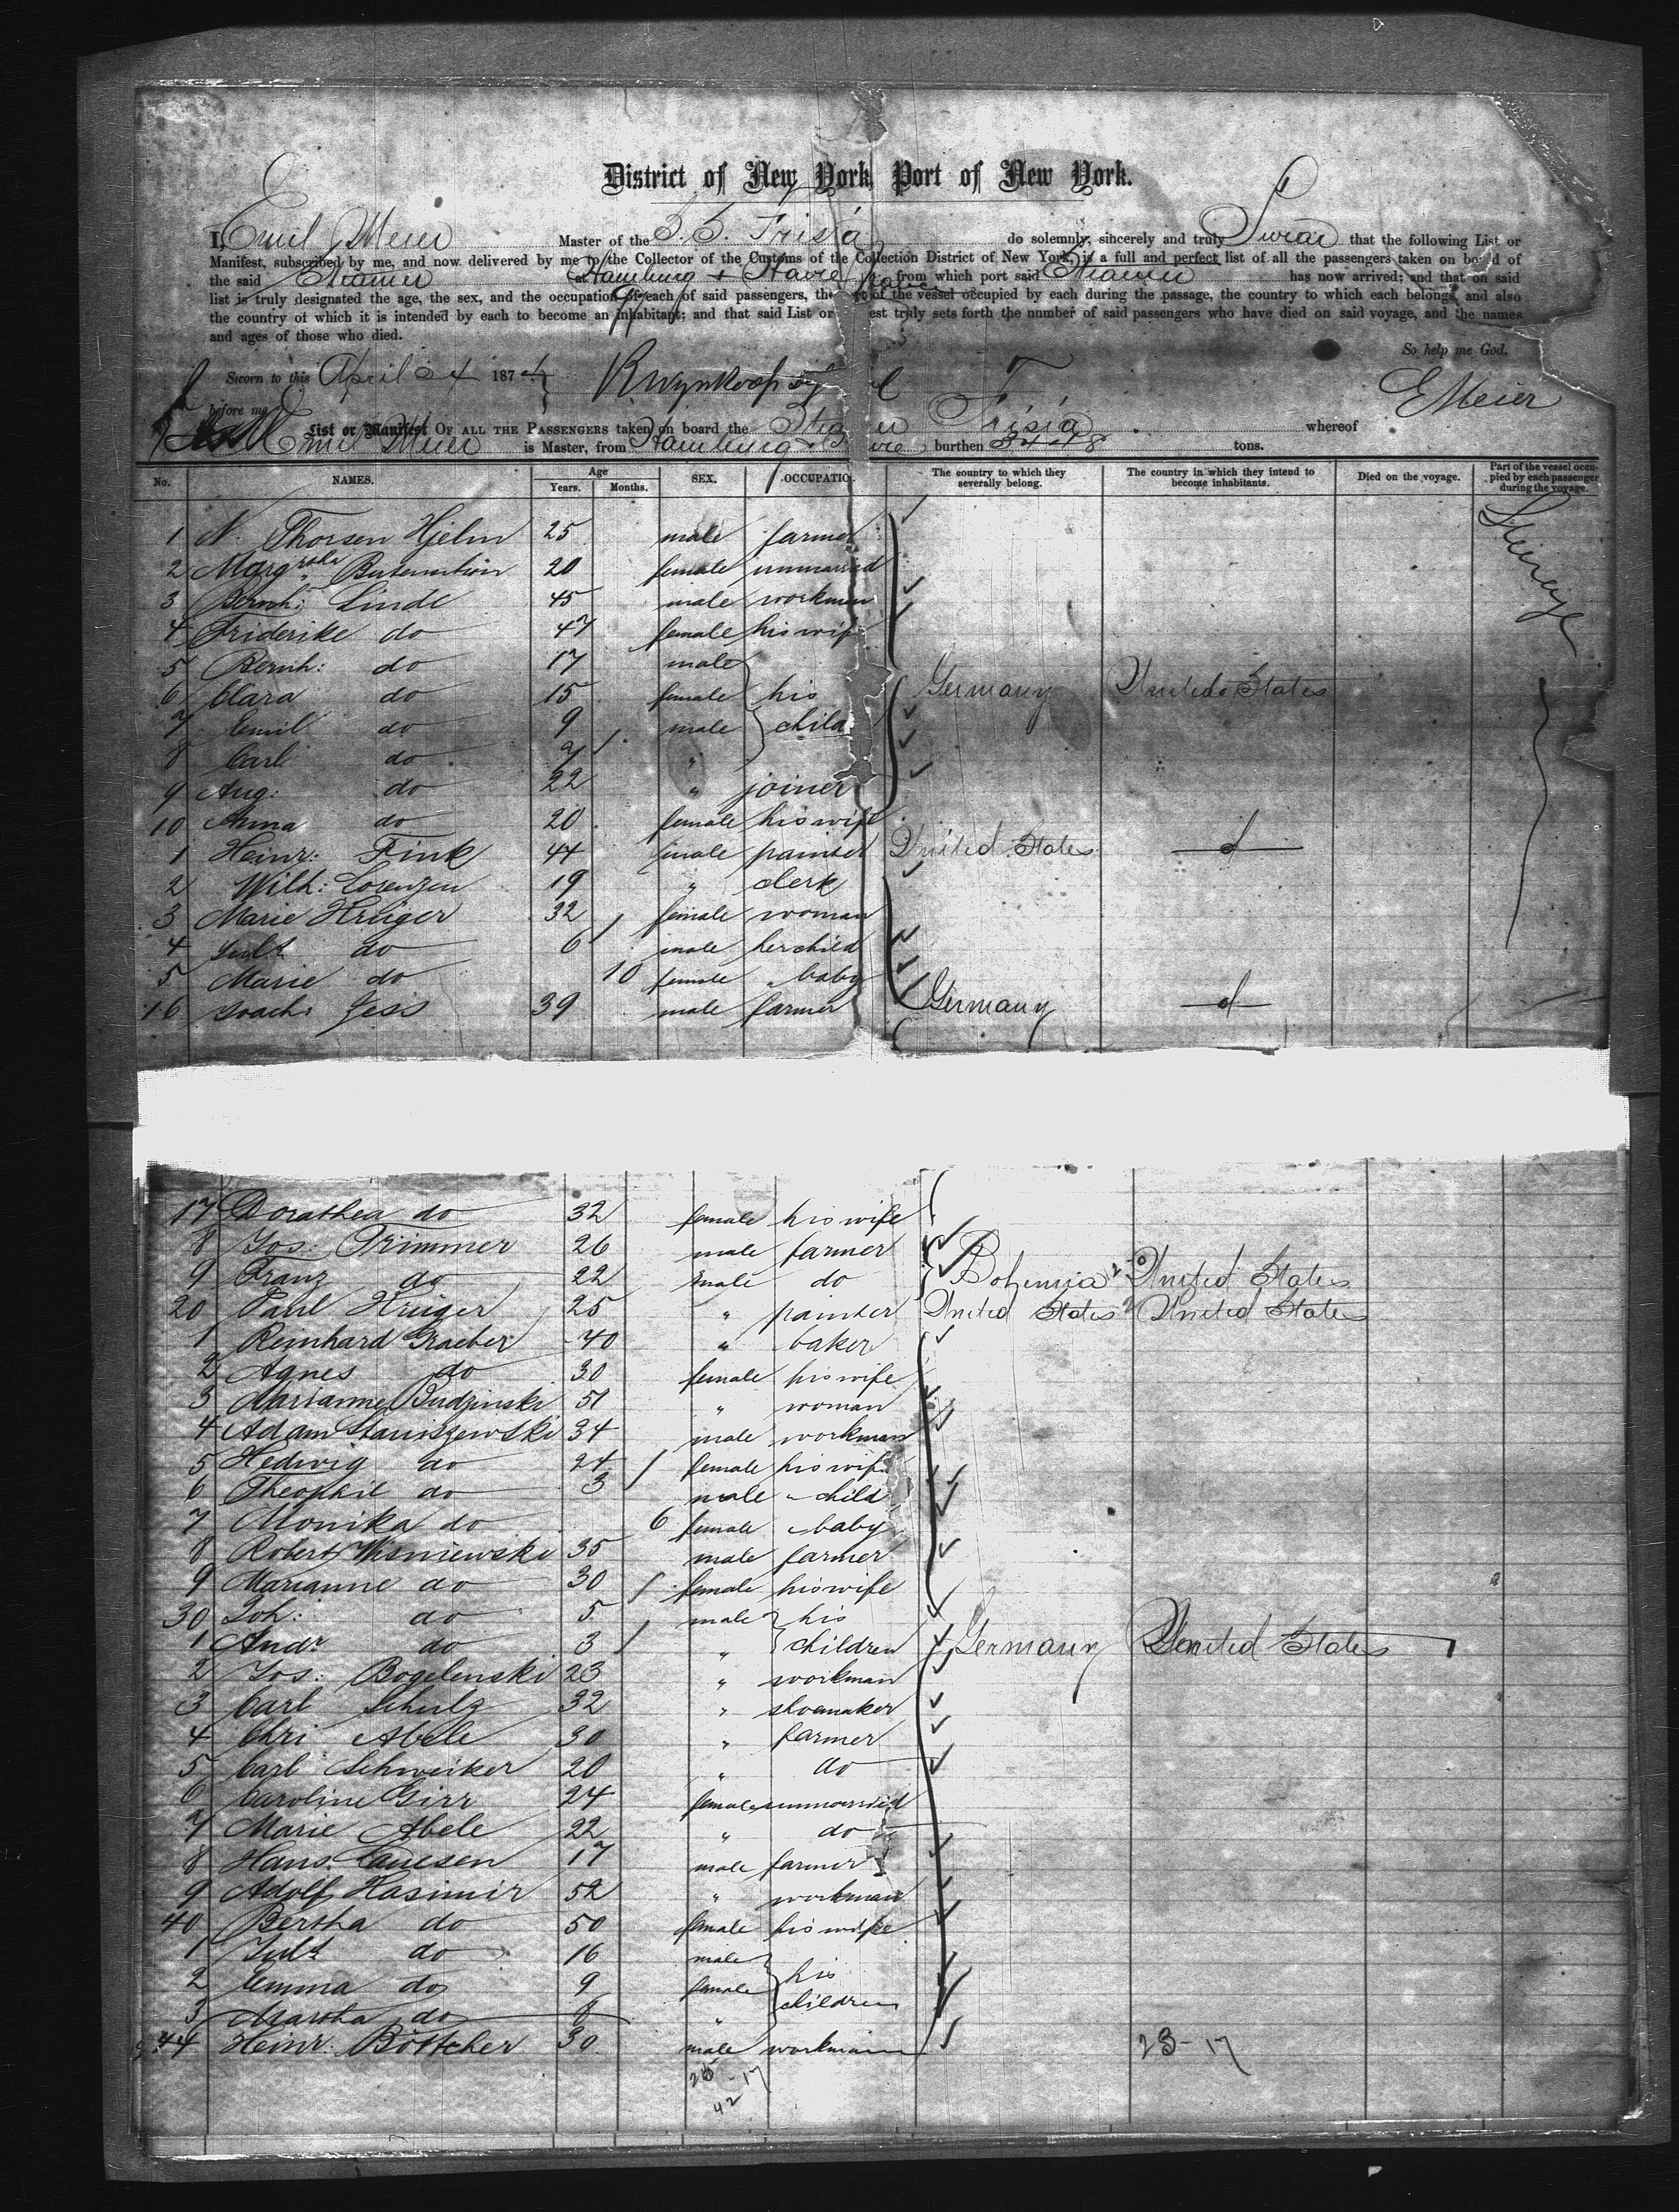 District of New York, Port of New York.
I, Emil Meier Master of the S. S. Frisia do solemnly, sincerely and truly Swear that the following List or
Manifest, subscribed by me, and now delivered by me to the Collector of the Customs of the Collection District of New York, is a full and perfect list of all the passengers taken on board of
the said Steamer at Hamburg + Havre from which port said Steamer has now arrived; and that on said
list is truly designated the age, the sex, and the occupation of each of said passengers, the of the vessel occupied by each during the passage, the country to which each belongs, and also
the country of which it is intended by each to become an inhabitant; and that said List or est truly sets forth the number of said passengers who have died on said voyage, and the names
and ages of those who died.
So help me God.
Sworn to this April 24 187
before me
E Meier
List or Manifest OF ALL THE PASSENGERS taken on board the Steamer Frisia whereof
Emil Meier is Master, from Hamburg + Havre burthen tons.
No. NAMES. Age Years. Months. SEX. OCCUPATIO. The country to which they severally belong. The country in which they intend to become inhabitants. Died on the voyage. Part of the vessel occupied by each passenger during the voyage.
1 N. Thorsen Hjelm 25 male farmer Steerage
2 20 female unmarried
3 Bernh: Linde 45 male workman
4 Friderike do 47 female his wife
5 Bernh: do 17 male
6 Clara do 15 female his Germany United States
7 Emil do 9 male child
8 Carl do 7 "
9 Aug: do 22 " joiner
10 Anna do 20 female his wife
1 Heinr: Fink 44 male painter United States d
2 Wilh: Lorenzen 19 " clerk
3 Marie Krüger 32 female woman
4 Juls do 6 male her child
5 Marie do 10 female " baby
16 Joach: Jess 39 male farmer Germany d
17 Dorathea do 32 female his wife
8 Jos: Trimmer 26 male farmer
9 Franz do 22 male do Bohemia United States
20 Paul Krüger 25 " painter United States United States
1 Reinhard Graeber 40 " baker
2 Agnes do 30 female his wife
3 Marianne Budzinski 51 " woman
4 Adam Staniszewski 34 male workman
5 Hedwig do 24 female his wife
6 Theophil do 3 male " child
7 Monika do 6 female " baby
8 Robert Wisniewski 35 male farmer
9 Marianne do 30 female his wife
30 Joh: do 5 male his
1 Andr do 3 " children Germany United States
2 Jos: Bogelenski 23 " workman
3 Carl Schulz 32 " shoemaker
4 Chri Abele 30 " farmer
5 Carl Schweiker 20 " do
6 Caroline Girr 24 female unmarried
7 Marie Abele 22 " do
8 Hans Clausen 17 male farmer
9 Adolf Kasimir 52 " workman
40 Bertha do 50 female his wife
1 Juls do 16 male
2 Emma do 9 female his
3 Martha do 8 " children
44 Heinr: Böttcher 30 male workman
23-17
25-17
42